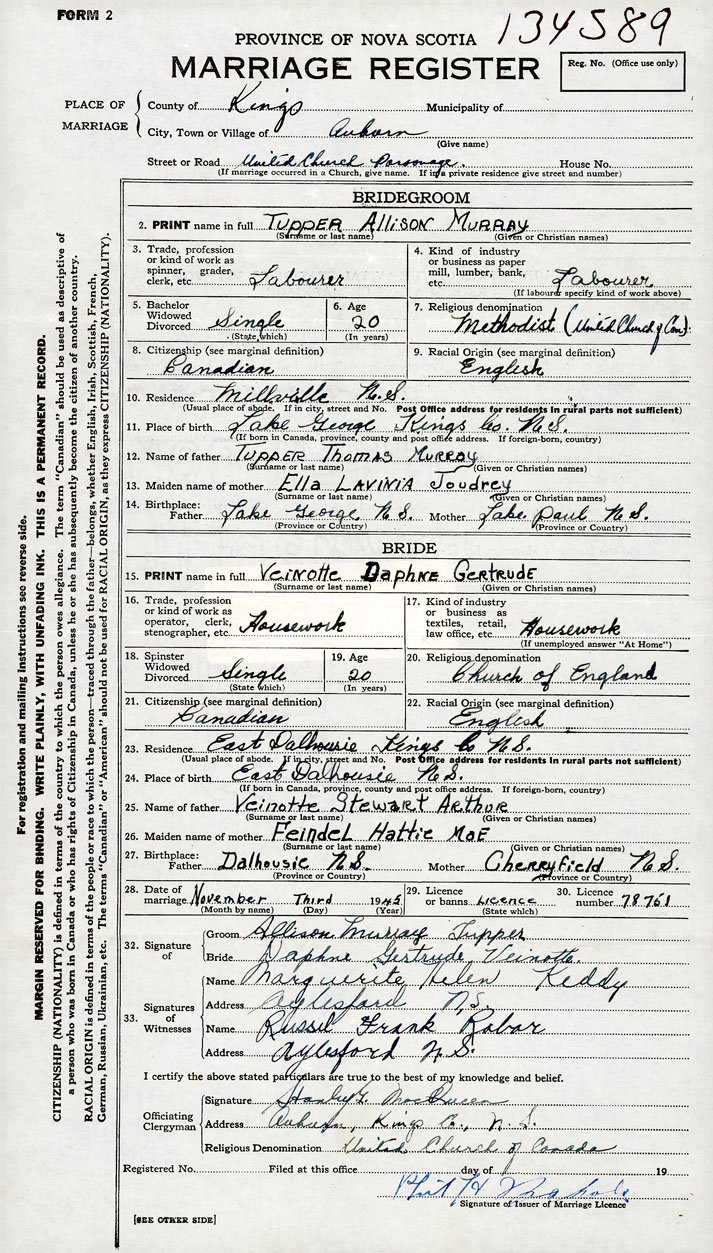 FORM 2
134589
PROVINCE OF NOVA SCOTIA
MARRIAGE REGISTER
Reg. No. (Office use only)
PLACE OF MARRIAGE
County of Kings Municipality of
City, Town or Village of Auburn
(Give name)
Street or Road United Church Parsonage. House No.
(If marriage occurred in a Church, give name. If in a private residence give street and number)
BRIDEGROOM
2. PRINT name in full TUPPER ALLISON MURRAY
(Surname or last name) (Given or Christian names)
3. Trade, profession or kind of work as spinner, grader, clerk, etc. Labourer
4. Kind of industry or business as paper mill, lumber, bank, etc. Labourer
(If labourer specify kind of work above)
5. Bachelor Widowed Divorced Single
(State which)
6. Age 20
(In years)
7. Religious denomination
Methodist (United Church of Can).
8. Citizenship (see marginal definition)
Canadian
9. Racial Origin (see marginal definition)
English
10. Residence Millville N.S.
(Usual place of abode. If in city, street and No. Post Office address for residents in rural parts not sufficient)
11. Place of birth Lake George Kings Co. N.S.
(If born in Canada, province, county and post office address. If foreign-born, country)
12. Name of father TUPPER THOMAS MURRAY
(Surname or last name) (Given or Christian names)
13. Maiden name of mother Ella LAVINIA Joudrey
(Surname or last name) (Given or Christian names)
14. Birthplace: Father Lake George N.S. Mother Lake Paul N.S.
(Province or Country) (Province or Country)
BRIDE
15. PRINT name in full Veinotte Daphne Gertrude
(Surname or last name) (Given or Christian names)
16. Trade, profession or kind of work as operator, clerk, stenographer, etc. Housework
17. Kind of industry or business as textiles, retail, law office, etc. Housework
(If unemployed answer "At Home")
18. Spinster Widowed Divorced Single
(State which)
19. Age 20
(In years)
20. Religious denomination
Church of England
21. Citizenship (see marginal definition)
Canadian
22. Racial Origin (see marginal definition)
English
23. Residence East Dalhousie Kings Co N.S.
(Usual place of abode. If in city, street and No. Post Office address for residents in rural parts not sufficient)
24. Place of birth East Dalhousie N.S.
(If born in Canada, province, county and post office address. If foreign-born, country)
25. Name of father Veinotte Stewart Arthur
(Surname or last name) (Given or Christian names)
26. Maiden name of mother Feindel Hattie Mae
(Surname or last name) (Given or Christian names)
27. Birthplace: Father Dalhousie N.S. Mother Cherryfield N.S.
(Province or Country) (Province or Country)
28. Date of marriage November Third 1945
(Month by name) (Day) (Year)
29. Licence or banns Licence
(State which)
30. Licence number 78761
32. Signature of
Groom Allison Murray Tupper
Bride Daphne Gertrude Veinotte
33. Signatures of Witnesses
Name Marguerite Helen Keddy
Address Aylesford N.S.
Name Russil Frank Robar
Address Aylesford N.S.
I certify the above stated particulars are true to the best of my knowledge and belief.
Officiating Clergyman
Signature Stanley G. MacQueen
Address Auburn, Kings Co., N.S.
Religious Denomination United Church of Canada
Registered No. Filed at this office day of 19
Signature of Issuer of Marriage Licence
[SEE OTHER SIDE]
For registration and mailing instructions see reverse side.
MARGIN RESERVED FOR BINDING. WRITE PLAINLY, WITH UNFADING INK. THIS IS A PERMANENT RECORD.
CITIZENSHIP (NATIONALITY) is defined in terms of the country to which the person owes allegiance. The term "Canadian" should be used as descriptive of
a person who was born in Canada or who has rights of Citizenship in Canada, unless he or she has subsequently become the citizen of another country.
RACIAL ORIGIN is defined in terms of the people or race to which the person—traced through the father—belongs, whether English, Irish, Scottish, French,
German, Russian, Ukrainian, etc. The terms "Canadian" or "American" should not be used for RACIAL ORIGIN, as they express CITIZENSHIP (NATIONALITY).